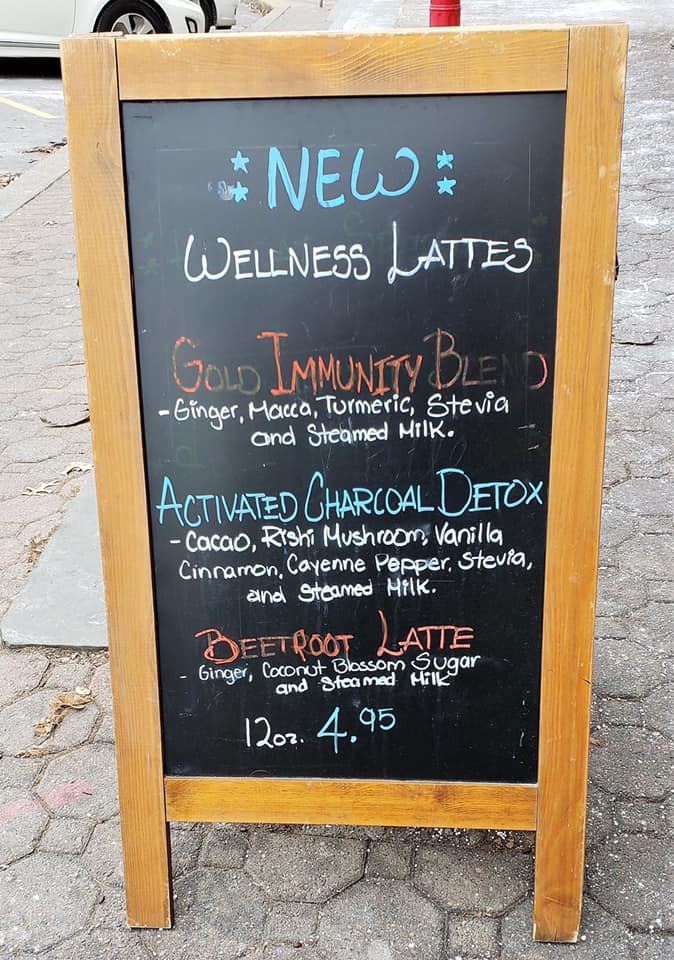 NEW
WELLNESS LATTES
GOLD IMMUNITY BLEND
- Ginger, Macca, Turmeric, Stevia
and Steamed Milk.
ACTIVATED CHARCOAL DETOX
- Cacao, Rishi Mushroom, Vanilla
Cinnamon, Cayenne Pepper, Stevia,
and Steamed Milk.
BEETROOT LATTE
- Ginger, Coconut Blossom Sugar
and Steamed Milk
12oz. 4.95